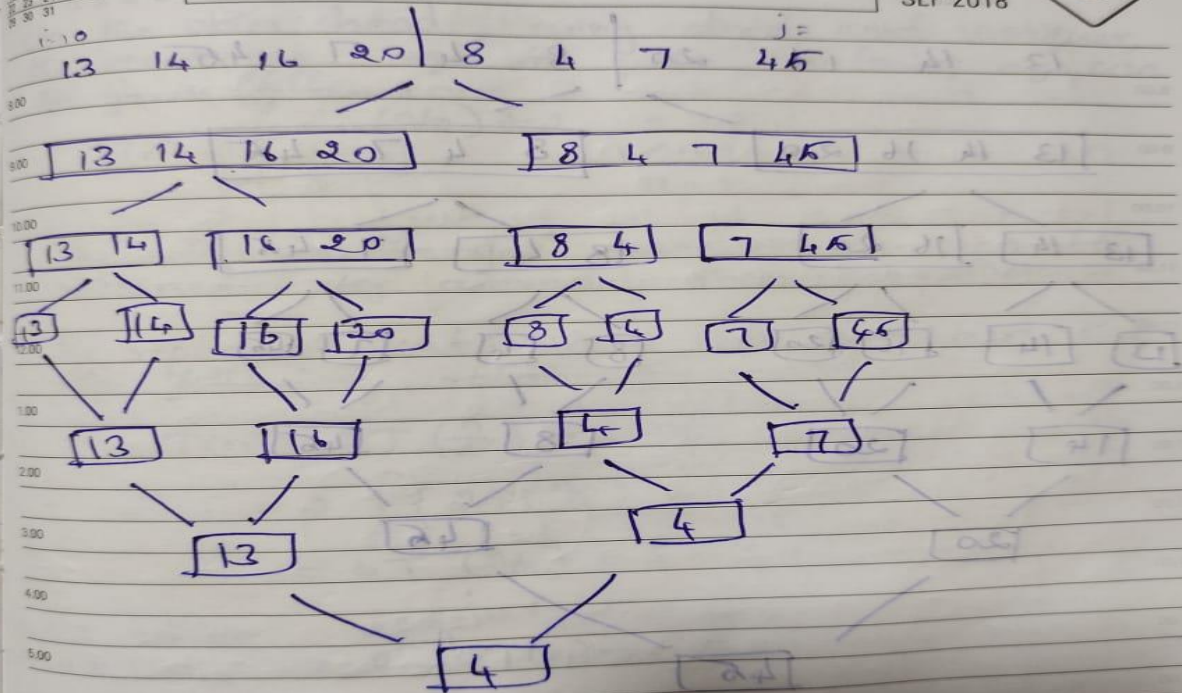 30 31
SEP 2018
i=0 j=
13 14 16 20 8 4 7 45
8.00
9.00 13 14 16 20 8 4 7 45
10.00
13 14 16 20 8 4 7 45
11.00
13 14 16 20 8 4 7 45
12.00
1.00
13 16 4 7
2.00
3.00
13 4
4.00
5.00
4